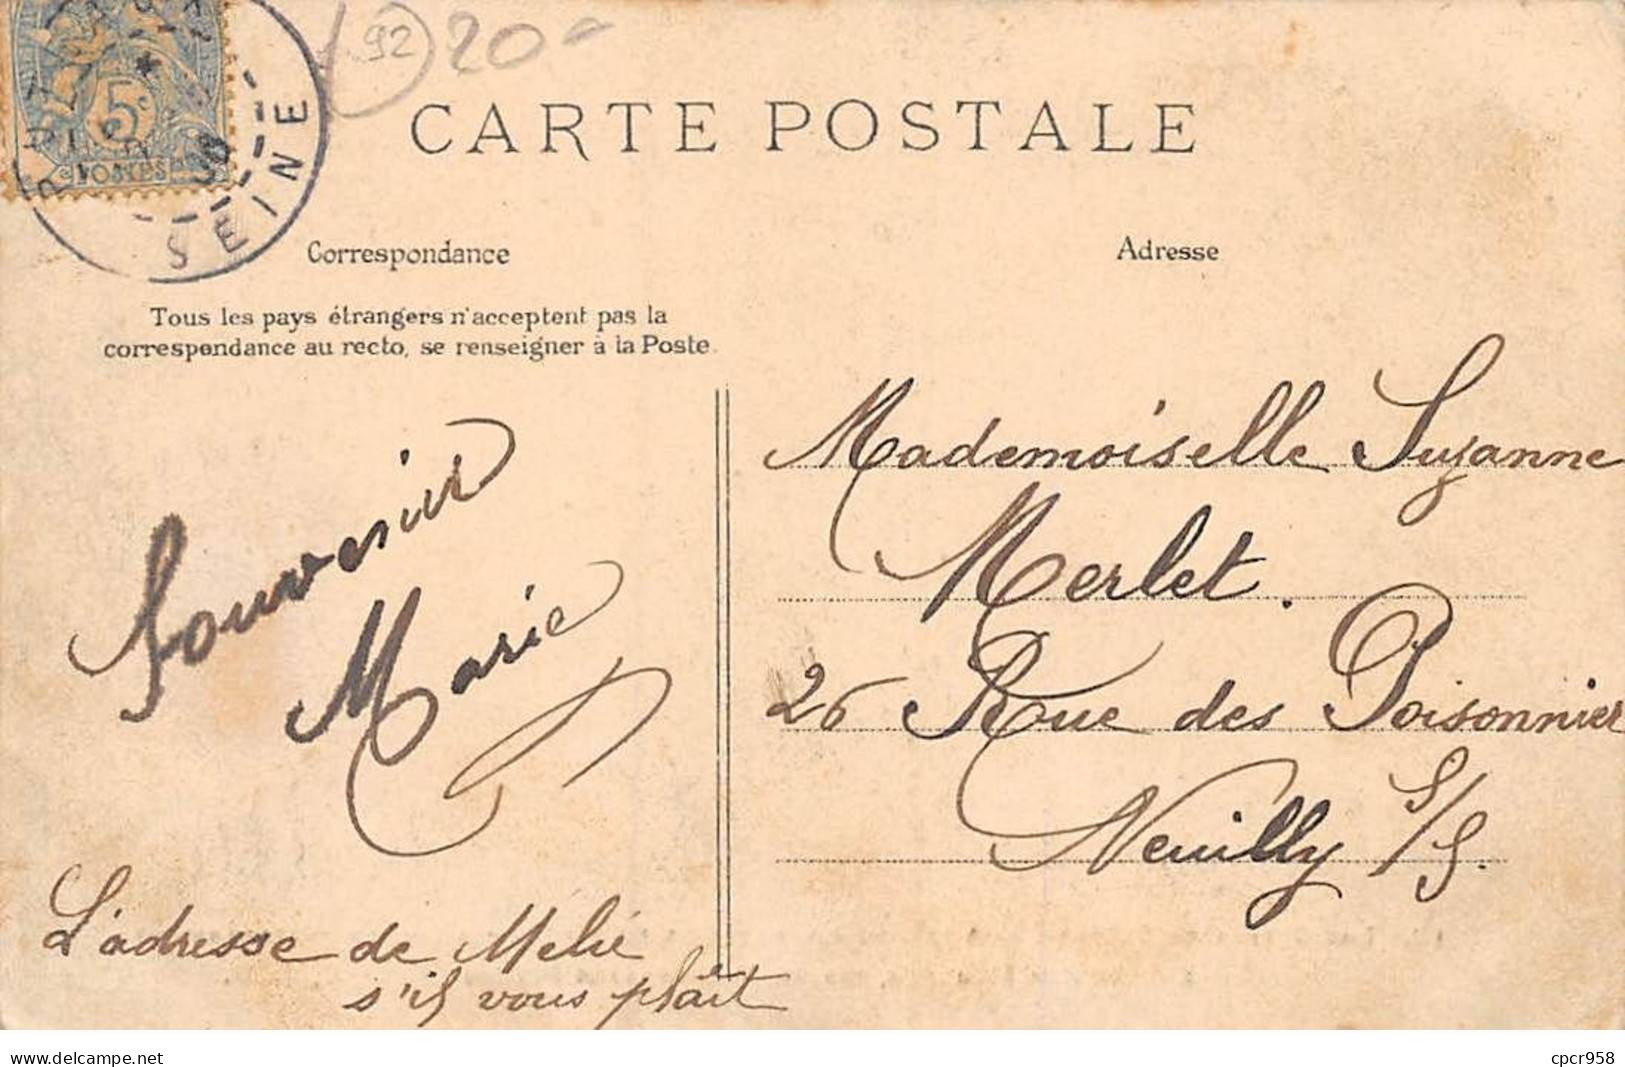 92 20
5c
POSTES
SEINE
CARTE POSTALE
Correspondance
Adresse
Tous les pays étrangers n'acceptent pas la
correspondance au recto, se renseigner à la Poste.
Mademoiselle Suzanne
Merlet.
26 Rue des Poisonnier
Neuilly S/S.
Souvenir
Marie
L'adresse de Melie
s'il vous plaît
www.delcampe.net
cpcr958